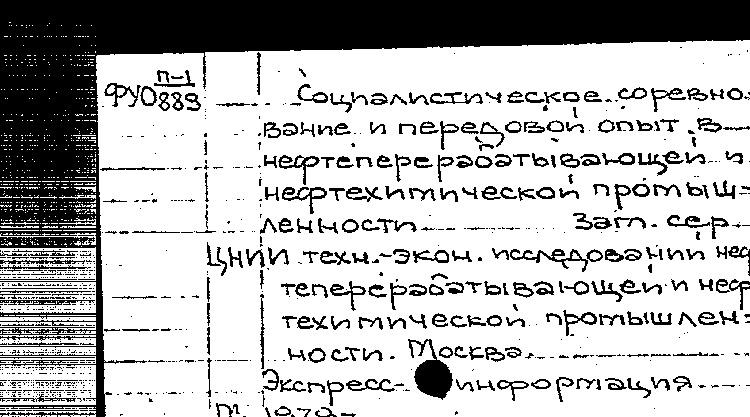 П-1
ФУО 889
Социалистическое соревно-
вание и передовой опыт в
нефтеперерабатывающей и
нефтехимической промыш-
ленности Заг. сер.
ЦНИИ техн.-экон. исследований неф
теперерабатывающей и неф
техимической промышлен-
ности. Москва.
Экспресс-информация